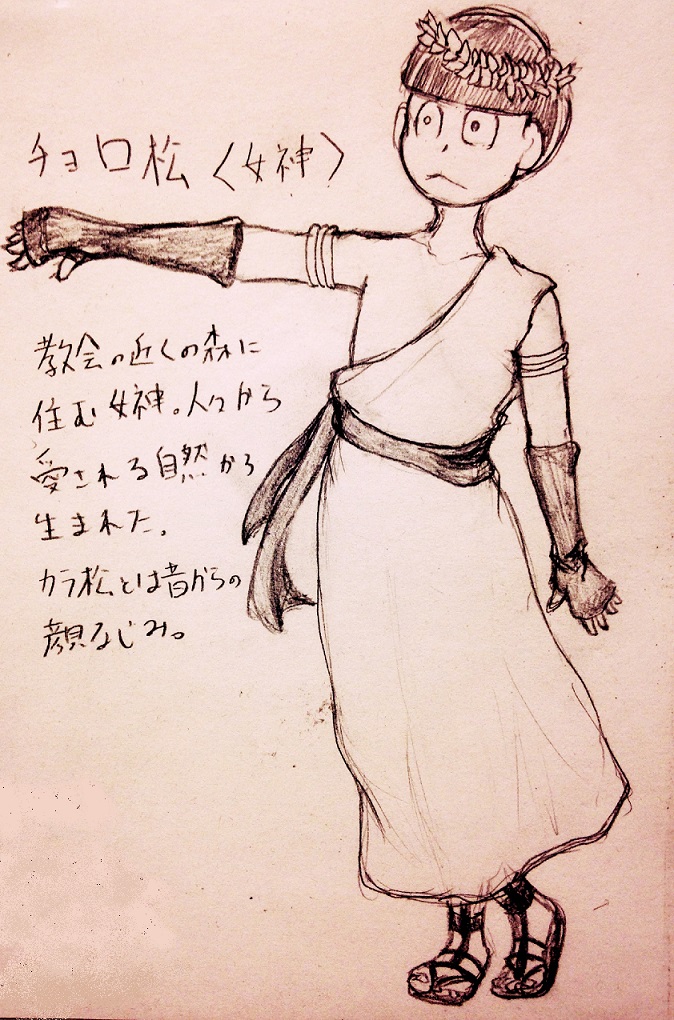 チョロ松〈女神〉
教会の近くの森に
住む女神。人々から
愛される自然から
生まれた。
カラ松とは昔からの
顔なじみ。